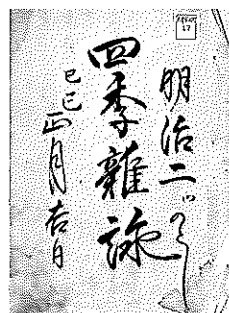 明治二
四季雜詠
己巳正月吉日